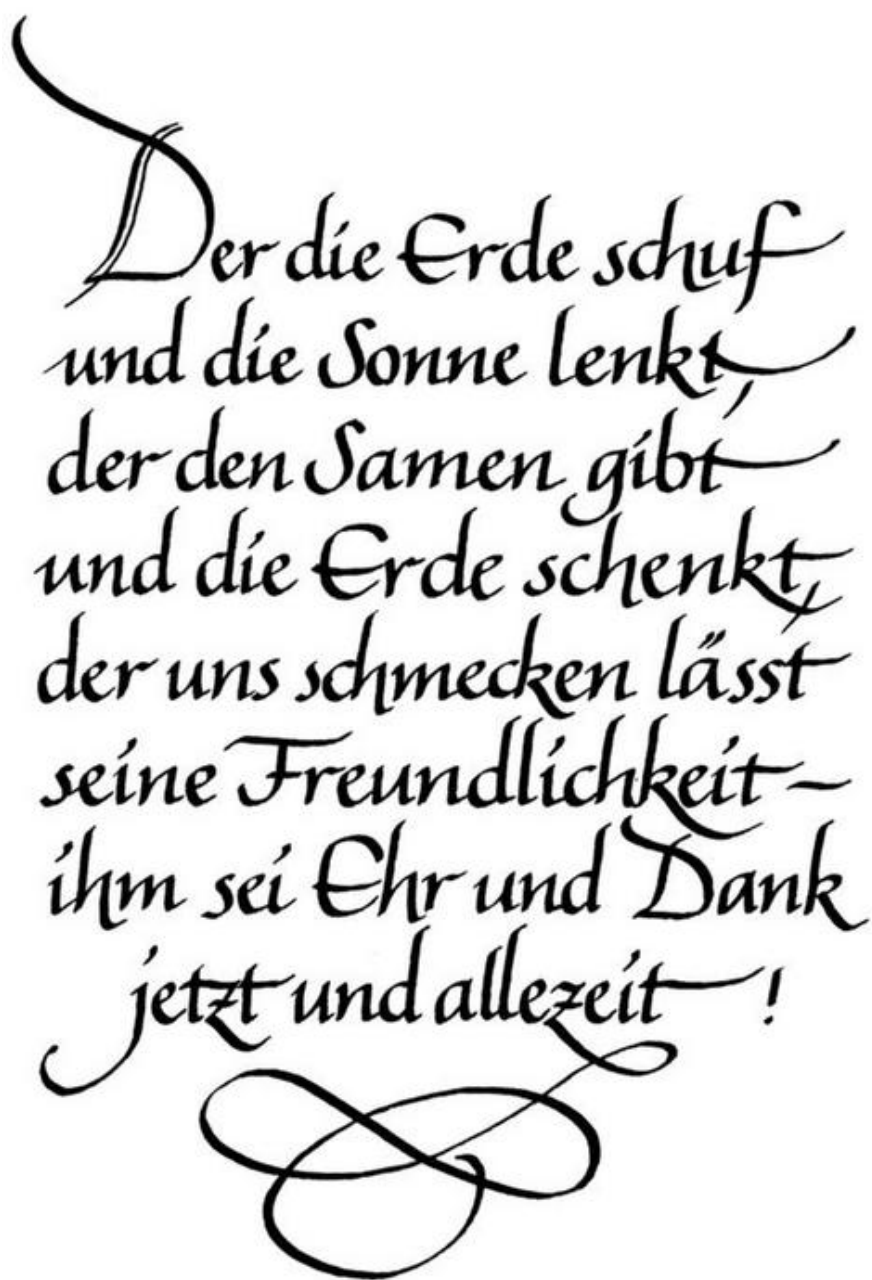 Der die Erde schuf
und die Sonne lenkt,
der den Samen gibt
und die Erde schenkt,
der uns schmecken lässt
seine Freundlichkeit –
ihm sei Ehr und Dank
jetzt und allezeit !